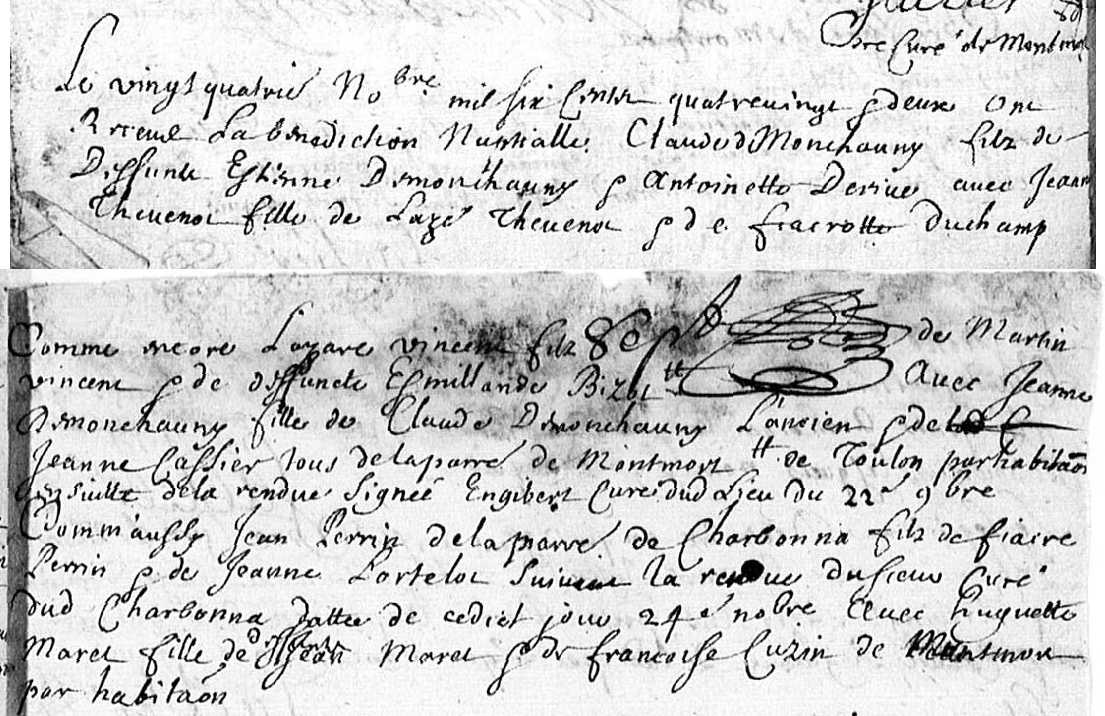 Curé de Montmor
Le vingt quatrie Nobre mil six Cents quatrevingt & deux ont
Receue La benediction Nuptialle Claude d Monchauny filz de
Deffunts Estienne Demonchauny & Antoinette Derive avec Jeann
Thevenot fille de Lazé Thevenot & de fiacrotte Duchamp
Comme encore Lazare vincent filz de Martin
vincent & de deffuncte Esmillande Bizot avec Jeanne
Demonchauny fille de Claude Demonchauny L'ancien & de
Jeanne Cassier tous de laparre de Montmort et de Toulon par habitaon
ensuitte dela rendue Signée Engibert Curé dud Lieu du 22e 9bre
Comm'aussy Jean Perrin delaparre de Charbonna filz de fiacre
Perrin & de Jeanne Lortelot suivant la rendue du sieur Curé
dud Charbonna datte de cedict jour 24e nobre avec huguette
Maret fille de deffunt Jean Maret & de francoise Cuzin de Montmort
par habitaon